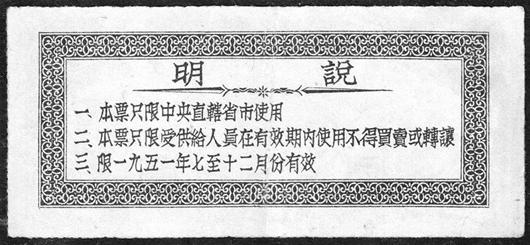 說明
一、本票只限中央直轄省市使用
二、本票只限受供給人員在有效期内使用不得買賣或轉讓
三、限一九五一年七至十二月份有效